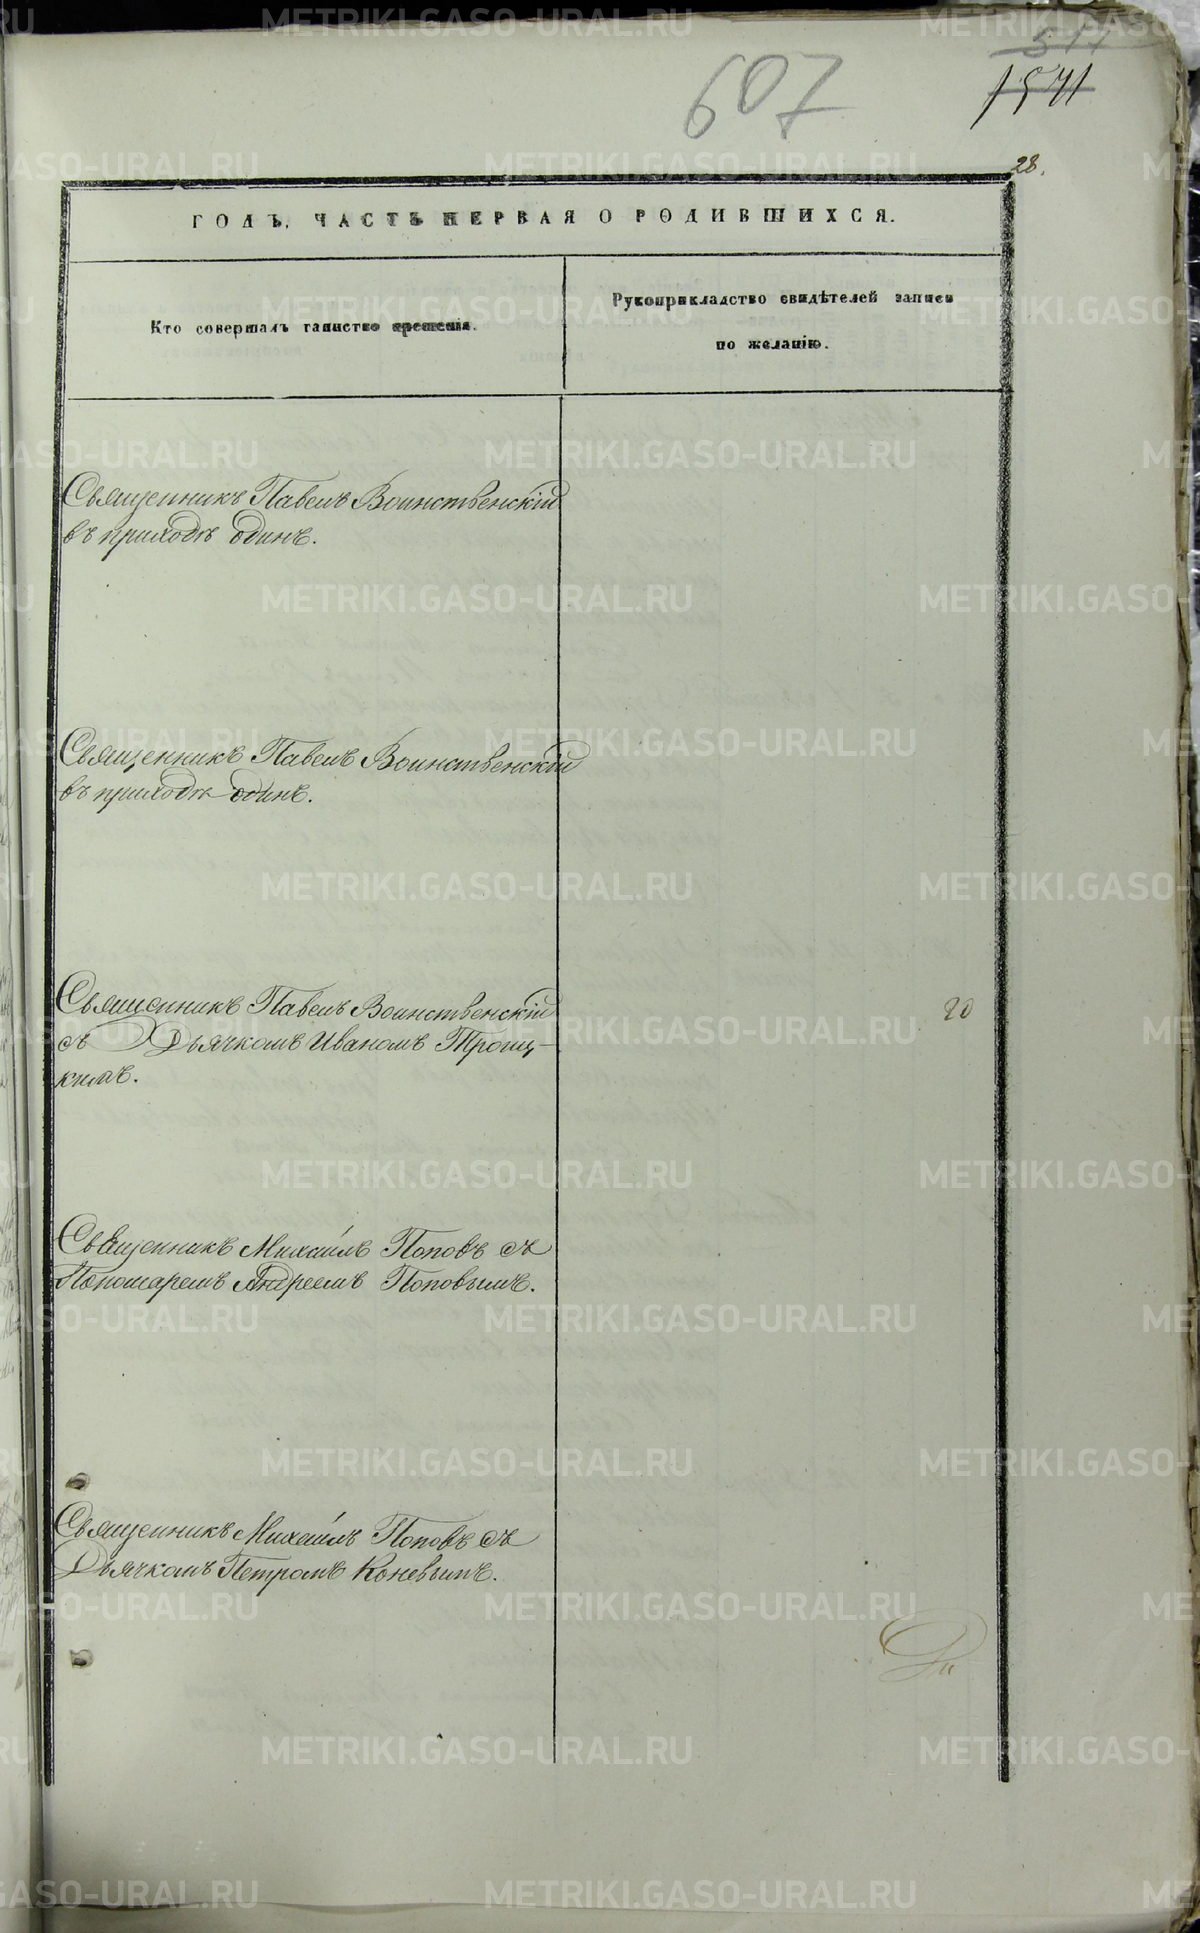 607
1541
28.
ГОДЪ, ЧАСТЬ ПЕРВАЯ О РОДИВШИХСЯ.
Кто совершалъ таинство крещенія.
Рукоприкладство свидѣтелей записи
по желанію.
Священникъ Павелъ Воинственскій
въ приходѣ одинъ.
Священникъ Павелъ Воинственскій
въ приходѣ одинъ.
Священникъ Павелъ Воинственскій
съ Дьячкомъ Иваномъ Троиц-
кимъ.
20
Священникъ Михаилъ Поповъ съ
Пономаремъ Андреемъ Поповымъ.
Священникъ Михаилъ Поповъ съ
Дьячкомъ Петромъ Коневымъ.
METRIKI.GASO-URAL.RU